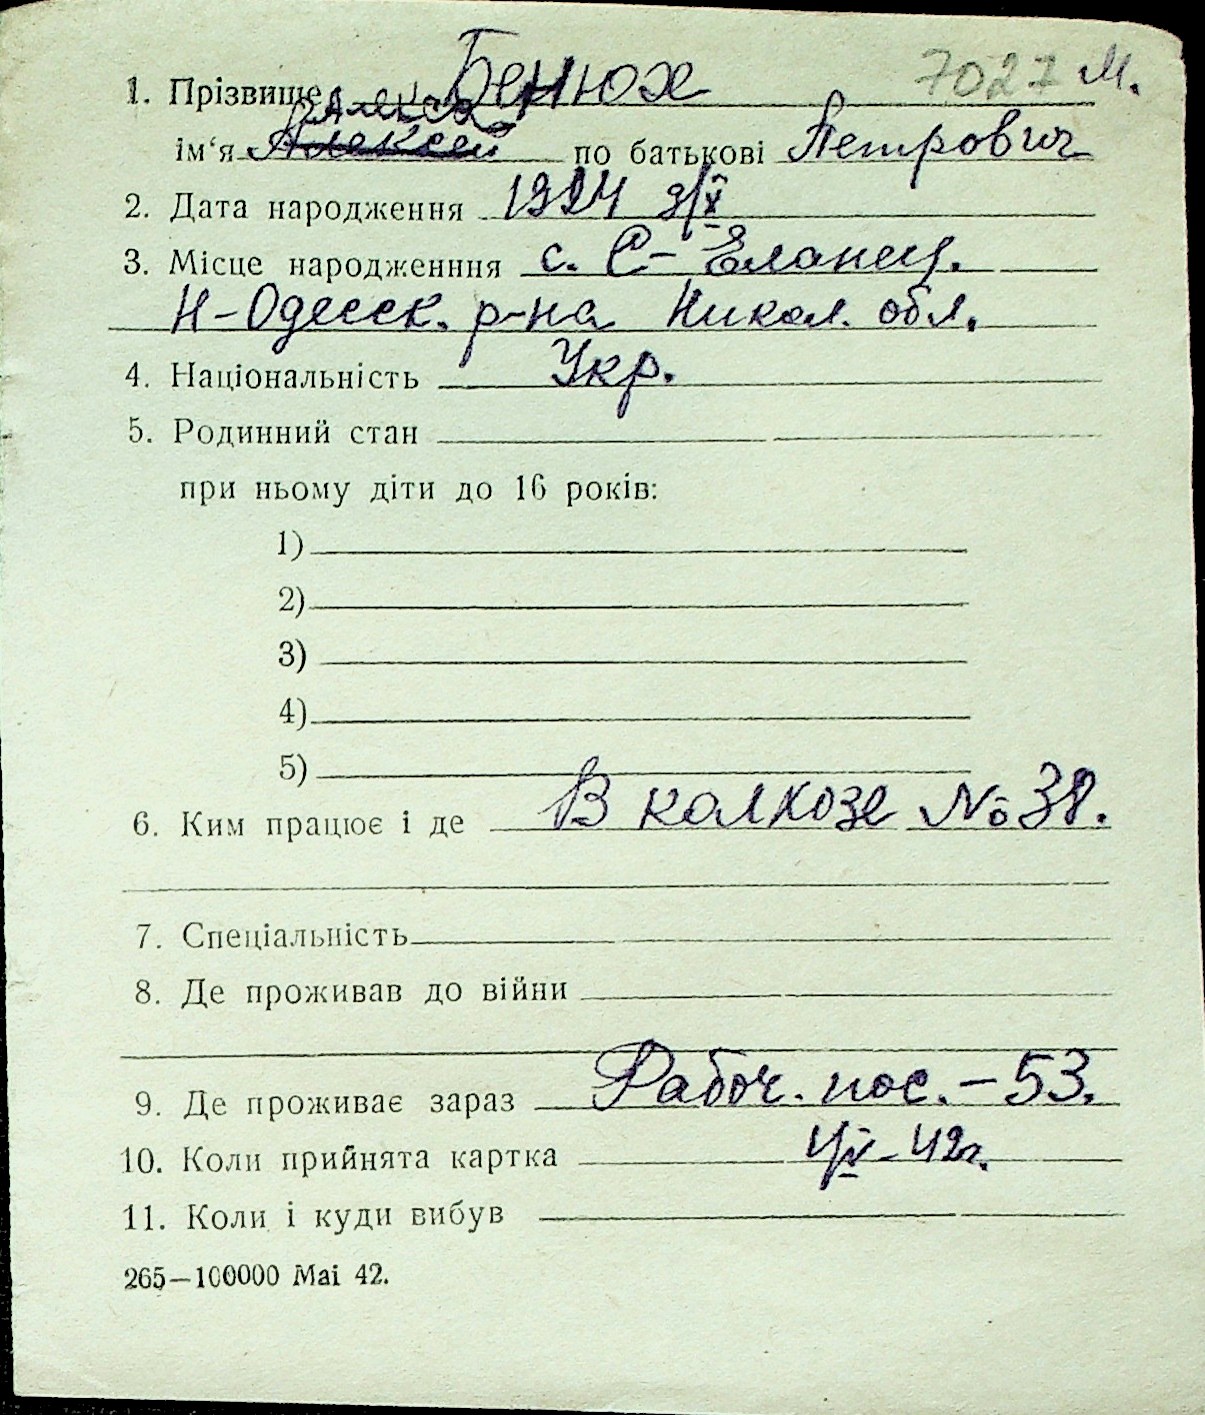 7027 М.
1. Прізвище Бенюх
Алекса
ім'я Алексей по батькові Петрович
2. Дата народження 1924 9/X
3. Місце народженння с. С- Еланец.
Н-Одесск. р-на Никол. обл.
4. Національність Укр.
5. Родинний стан
при ньому діти до 16 років:
1)
2)
3)
4)
5)
6. Ким працює і де В колхозе № 38.
7. Спеціальність
8. Де проживав до війни
9. Де проживає зараз Рабоч. пос. – 53.
10. Коли прийнята картка 4/IV – 42г.
11. Коли і куди вибув
265—100000 Mai 42.